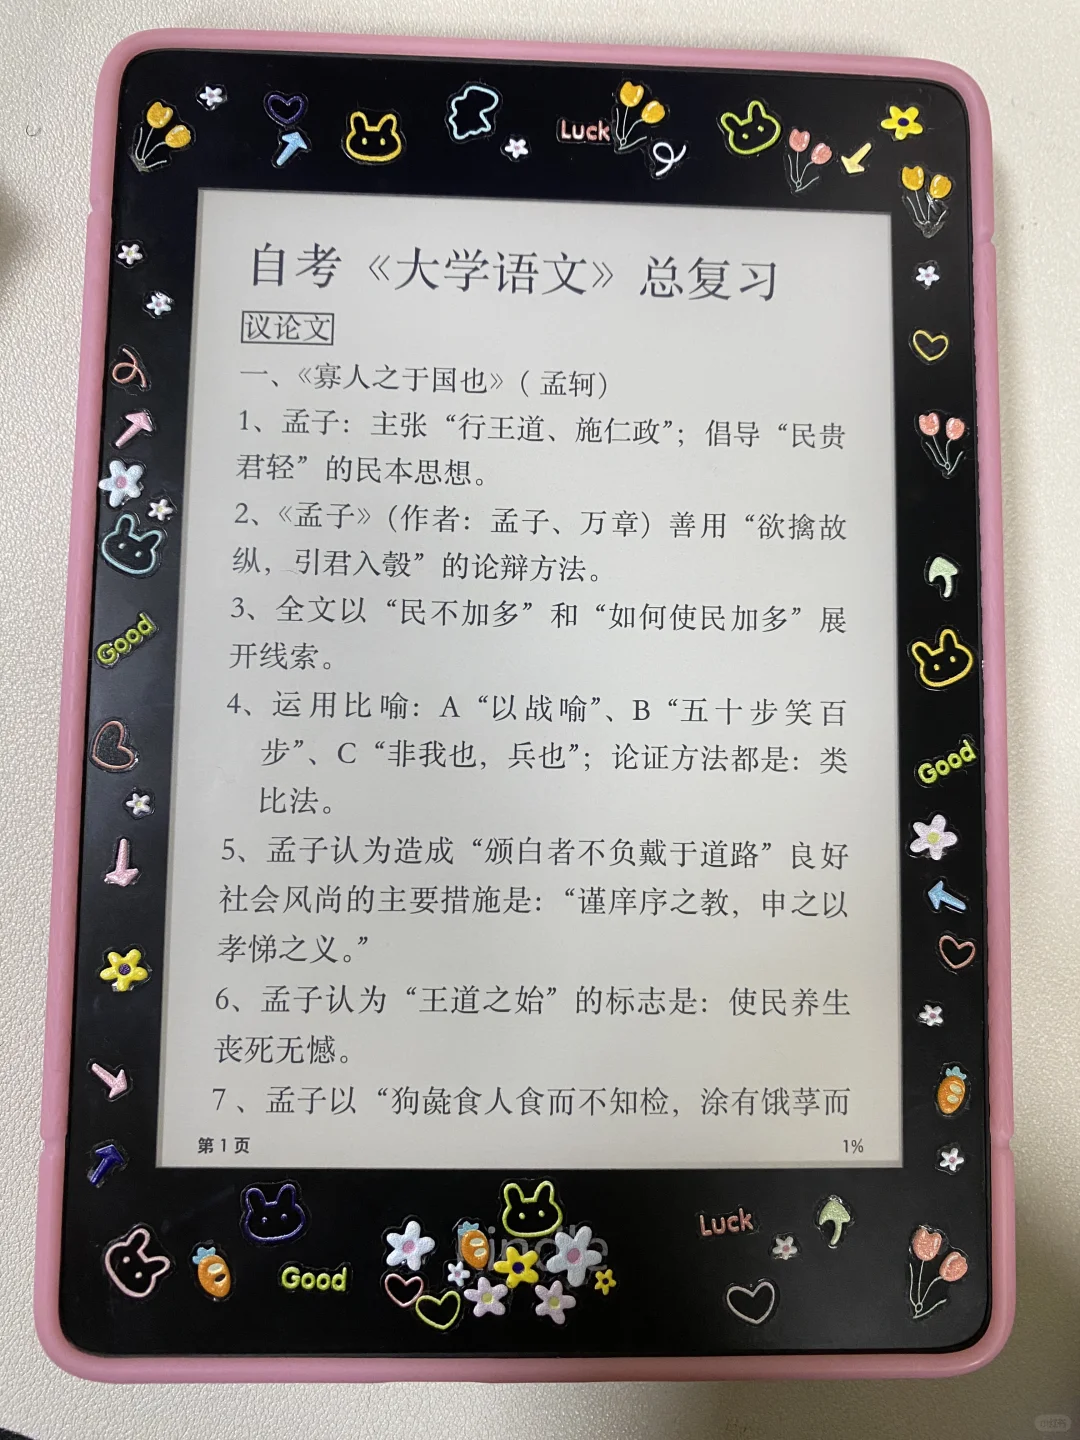 Luck
自考《大学语文》总复习
议论文
一、《寡人之于国也》（孟轲）
1、孟子：主张“行王道、施仁政”；倡导“民贵
君轻”的民本思想。
2、《孟子》（作者：孟子、万章）善用“欲擒故
纵，引君入彀”的论辩方法。
3、全文以“民不加多”和“如何使民加多”展
开线索。
4、运用比喻：A“以战喻”、B“五十步笑百
步”、C“非我也，兵也”；论证方法都是：类
比法。
5、孟子认为造成“颁白者不负戴于道路”良好
社会风尚的主要措施是：“谨庠序之教，申之以
孝悌之义。”
6、孟子认为“王道之始”的标志是：使民养生
丧死无憾。
7、孟子以“狗彘食人食而不知检，涂有饿莩而
第1页
1%
Good
Good
Luck
Good
kindle
小红书